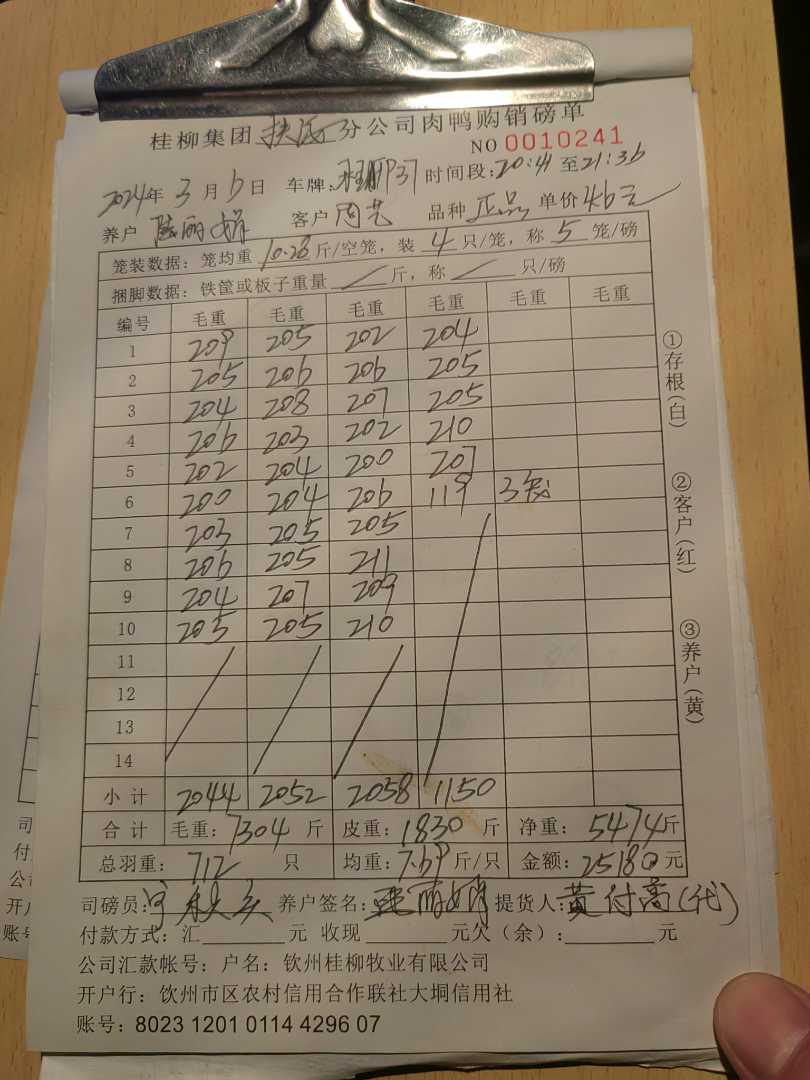 桂柳集团 扶 分公司肉鸭购销磅单
NO 0010241
2024年 3月6日 车牌: 桂 P37 时间段: 20:41 至 21:36
养户 陆丽娟 客户 周艺 品种 正品 单价 4.6元
笼装数据: 笼均重 10.28 斤/空笼, 装 4 只/笼, 称 5 笼/磅
捆脚数据: 铁筐或板子重量 / 斤, 称 / 只/磅
编号 毛重 毛重 毛重 毛重 毛重 毛重
1 209 205 202 204
2 205 206 206 205
3 204 208 207 205
4 206 203 202 210
5 202 204 200 207
6 200 204 206 119 3笼
7 203 205 205
8 206 205 211
9 204 207 209
10 205 205 210
11
12
13
14
小计 2044 2052 2058 1150
合计 毛重: 7304 斤 皮重: 1830 斤 净重: 5474 斤
总羽重: 712 只 均重: 7.69 斤/只 金额: 25180 元
司磅员: 养户签名: 陆丽娟 提货人: 黄付高(代)
付款方式: 汇 元 收现 元欠(余): 元
公司汇款帐号: 户名: 钦州桂柳牧业有限公司
开户行: 钦州市区农村信用合作联社大垌信用社
账号: 8023 1201 0114 4296 07
①存根(白)
②客户(红)
③养户(黄)
司
付
公
开
账号